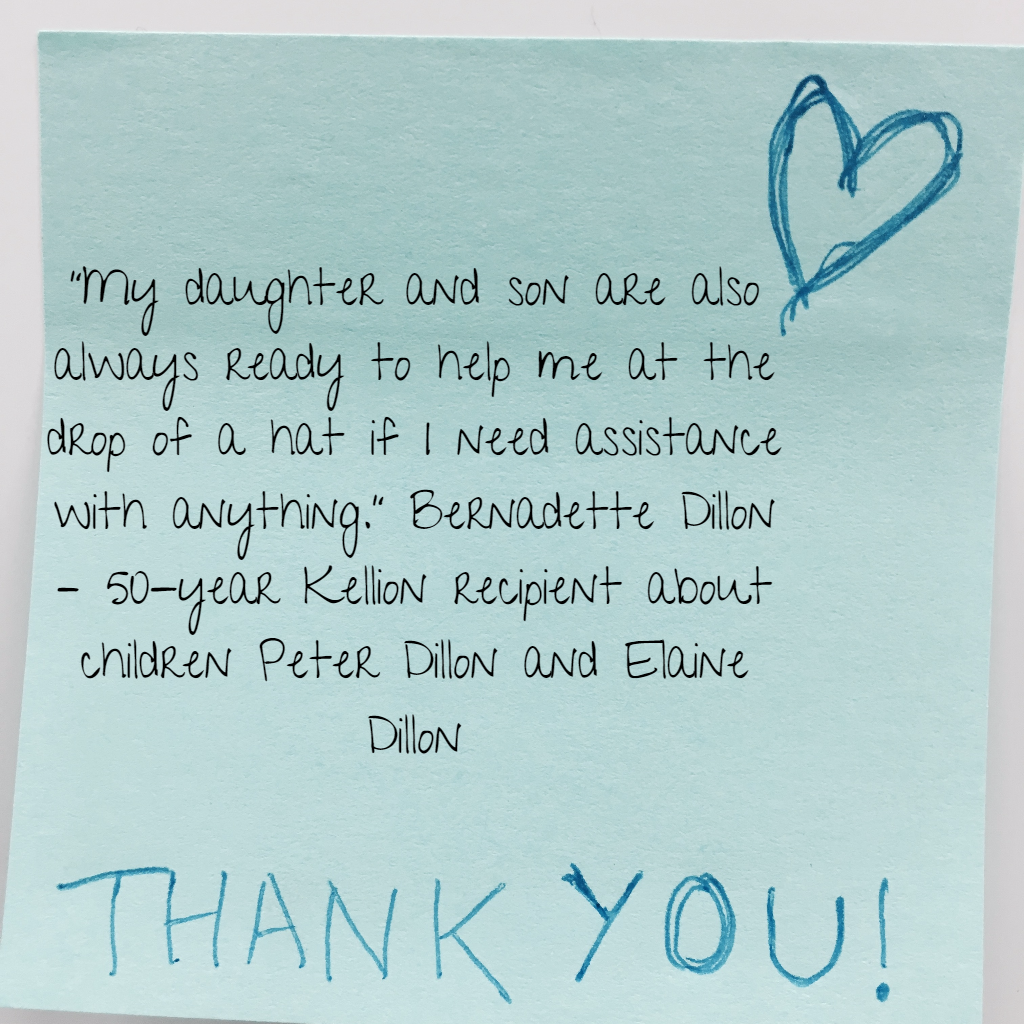 "My daughter and son are also
always ready to help me at the
drop of a hat if I need assistance
with anything." Bernadette Dillon
- 50-year Kellion recipient about
children Peter Dillon and Elaine
Dillon
THANK YOU!